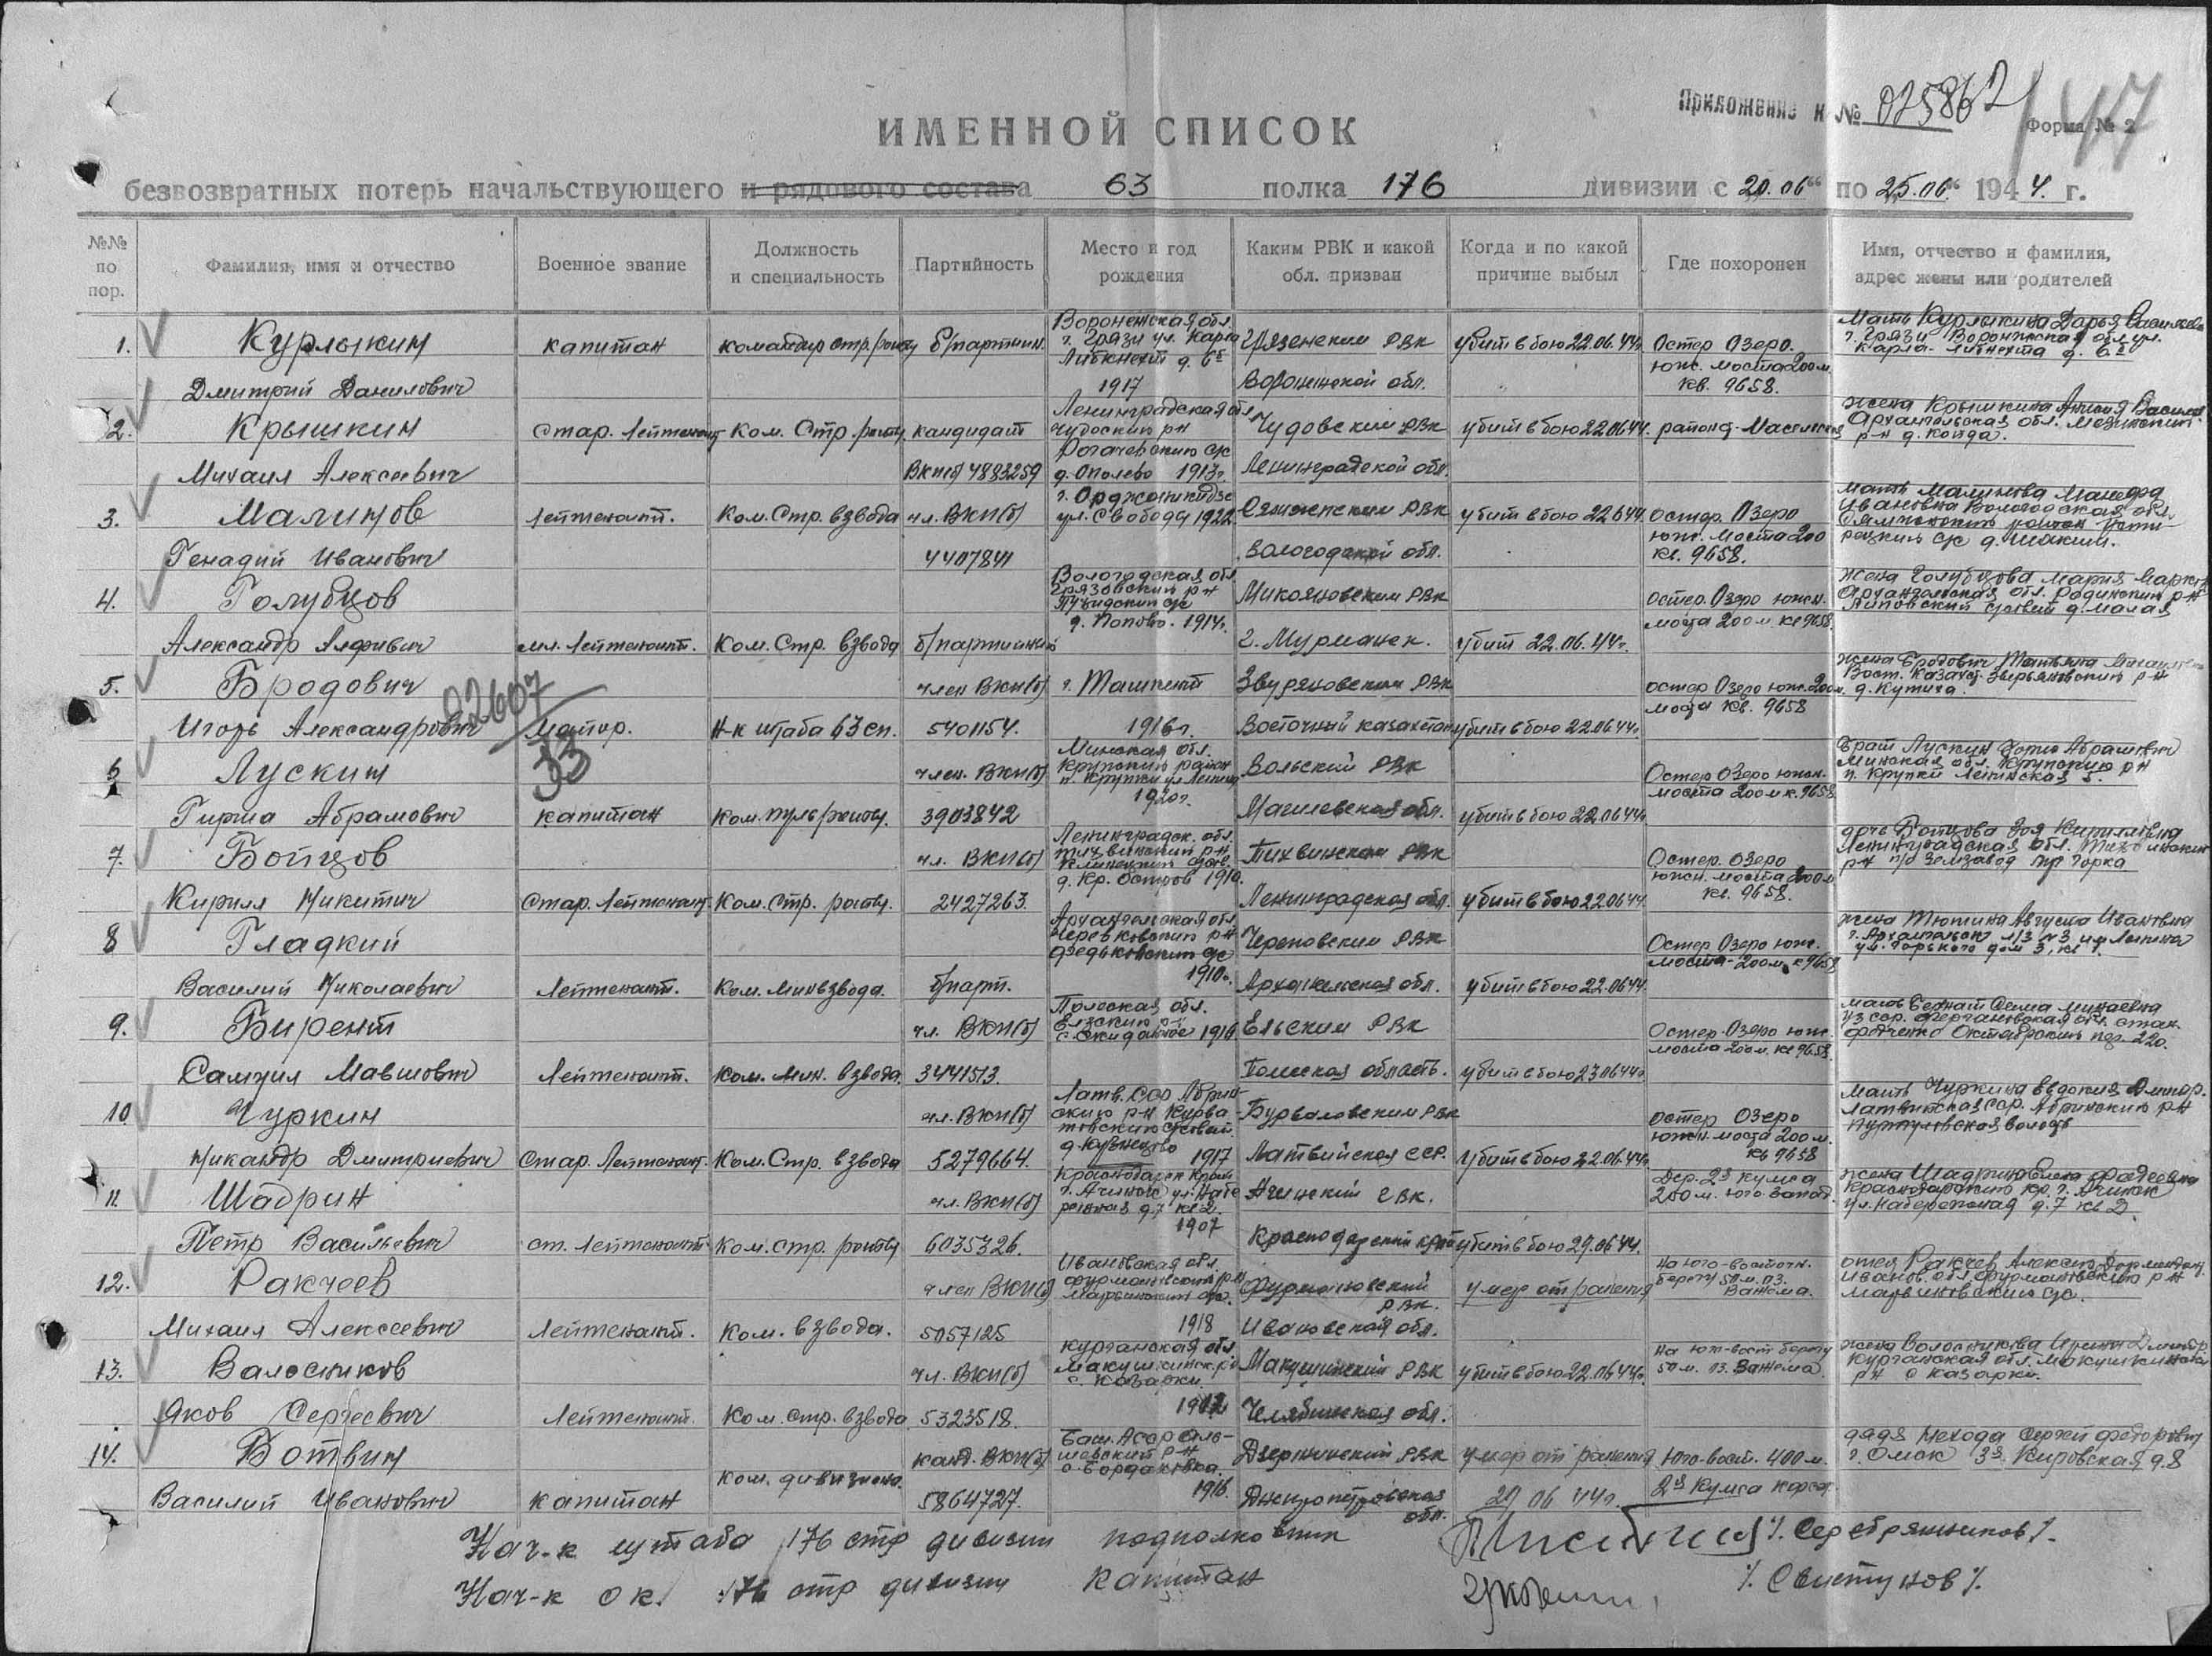 Приложение к № 025862
147
Форма № 2
ИМЕННОЙ СПИСОК
безвозвратных потерь начальствующего и рядового состава 63 полка 176 дивизии с 20.06 по 25.06. 1944. г.
№№ по пор.
Фамилия, имя и отчество
Военное звание
Должность и специальность
Партийность
Место и год рождения
Каким РВК и какой обл. призван
Когда и по какой причине выбыл
Где похоронен
Имя, отчество и фамилия, адрес жены или родителей
1. Курлыкин капитан командир стр. роты б/партийн. Воронежская обл. г. Грязи ул. Карла Либкнехт д. 6 Грязенский РВК убит в бою 22.06.44г. Остер Озеро. Мать Курлыкина Дарья
г. Грязи Воронежская обл. ул. Карла-Либкнехта д. 6
Дмитрий Данилович 1917 Воронежской обл. южн. моста 200м. кв. 9658.
2. Крышкин Стар. Лейтенант Ком. Стр. роты кандидат Ленинградская обл Чудоский рн Чудовский РВК убит в бою 22.06.44г. район д. Масельская жена Крышкина Василь
Архангельская обл. Мезенский р-н д. Койда.
Михаил Алексеевич ВКП(б) 4883259 Рогачевский с/с д. Ополево 1913г. Ленинградской обл.
3. Малинов Лейтенант. Ком. Стр. взвода чл. ВКП(б) г. Орджоникидзе ул. Свободы 1922 Сямженский РВК убит в бою 22.6.44. Остер. Озеро мать Малинова
Ивановна Вологодская обл.
Генадий Иванович 4407841 Вологодской обл. южн. моста 200 кв. 9658.
4. Голубцов Вологодская обл Грязовский р-н Микояновский РВК Остер. Озеро южн. моста 200м. кв 9658. жена Голубцова Мария
Архангельская обл. р-н
Александр мл. Лейтенант. Ком. Стр. взвода б/партийный д. Попово. 1914г. г. Мурманск. убит 22.06.44г.
5. Бродович член ВКП(б) г. Ташкент РВК остер Озеро южн. 200м. моста кв. 9658 жена Бродович Татьяна
Вост. Казахст. р-н
Игорь Александрович 02607 33 Майор. Н-к штаба 63 сп. 5401154. 1916г. Восточный казахстан убит в бою 22.06.44г.
6 Лускин член. ВКП(б) Минская обл. Крупский район п. Крупки ул Ленина Вольский РВК Остер Озеро южн. моста 200м к. 9658 Брат Лускин Абрамович
Минская обл. Крупский р-н п. Крупки Ленинская 5.
Гирша Абрамович капитан Ком. пуль/роты. 3903842 1920г. Магилевская обл. убит в бою 22.06.44г.
7. Бойцов чл. ВКП(б) Ленинградск. обл. Тихвинский р-н Тихвинский РВК Остер. Озеро дочь Бойцова Зоя Кирилловна
Ленинградская обл.
Кирилл Никитич Стар. Лейтенант. Ком. Стр. роты. 2427263. д. Кр. Остров 1910. Ленинградская обл. убит в бою 22.06.44. южн. моста 200м кв. 9658.
8 Гладкий Архангельская обл. Черевковский р-н РВК Остер Озеро южн. моста-200м к 9658 жена Тютина Августа Ивановна
г. Архангельск л/з №3 им Ленина ул. Горького дом 3, кв 1.
Василий Николаевич Лейтенант. Ком. минвзвода. б/парт. 1910г. Архангельская обл. убит в бою 22.06.44.
9. Бирент чл. ВКП(б) Полеская обл. 1916. Ельский РВК Остер. Озеро южн. моста 200м. кв 9658. мать
Уз сср. Ферганская обл.
Самуил Лейтенант. Ком. Мин. взвода. 3441513. Полеская область. убит в бою 23.06.44г.
10 Чуркин чл. ВКП(б) Латв. ССР РВК Остер Озеро мать Чуркина
Латвийская сср. р-н волость
Никандр Дмитриевич Стар. Лейтенант. Ком. Стр. взвода 5279664. д. Кузнецово 1917 Латвийская ССР. убит в бою 22.06.44г. южн. моста 200м. кв 9658
11. Шадрин чл. ВКП(б) г. Ачинск Ачинский ГВК. Дер. 2я Кумса 250м. юго запад. жена Шадрина Елена Фадеевна
г. Ачинск ул. Набережная д. 7 кв 2
Петр Васильевич ст. Лейтенант Ком. стр. роты 6035326. 1907 Краснодарский край убит в бою 29.06.44.
12. Ракчеев член ВКП(б) Ивановская обл. Фурмановский р-н Фурмановский РВК. умер от ранения На юго-восточн. берегу 50м. оз. Важема. отец Ракчеев Алексей
Иванов. обл. Фурмановский р-н
Михаил Алексеевич Лейтенант. Ком. взвода. 5057125 1918 Ивановская обл.
13. Валосников чл. ВКП(б) Курганская обл Макушинск. р-н с. Казарки Макушинский РВК убит в бою 22.06.44г. На юго-вост берегу 50м. оз. Важема жена Волосникова Ирина
Курганская обл. р-н с Казарки.
Яков Сергеевич Лейтенант. Ком. стр. взвода 5323518. 1912 Челябинская обл.
14. Ботвин канд. ВКП(б) Баш. АССР Дзержинский РВК умер от ранения Юго-вост. 400м. дядя Сергей Федорович
г. Омск 3я Кировская д. 8
Василий Иванович капитан Ком. дивизиона. 5864727. 1916. Днепропетровская обл. 29 06 44г. 2я Кумса
Нач-к штаба 176 стр дивизии подполковник /. Серебрянников /.
Нач-к ОК. 176 стр дивизии капитан /. Свистунов /.